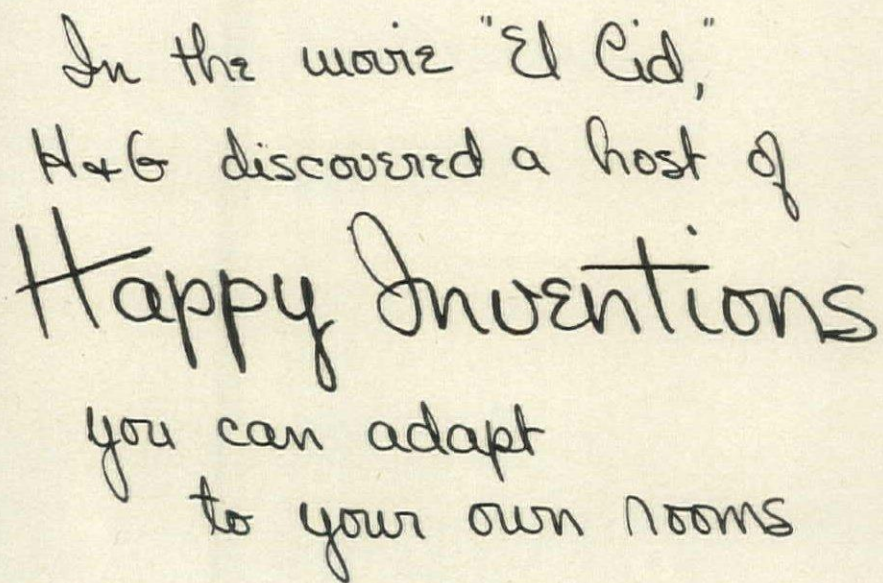 In the movie "El Cid,"
H&G discovered a host of
Happy Inventions
you can adapt
to your own rooms